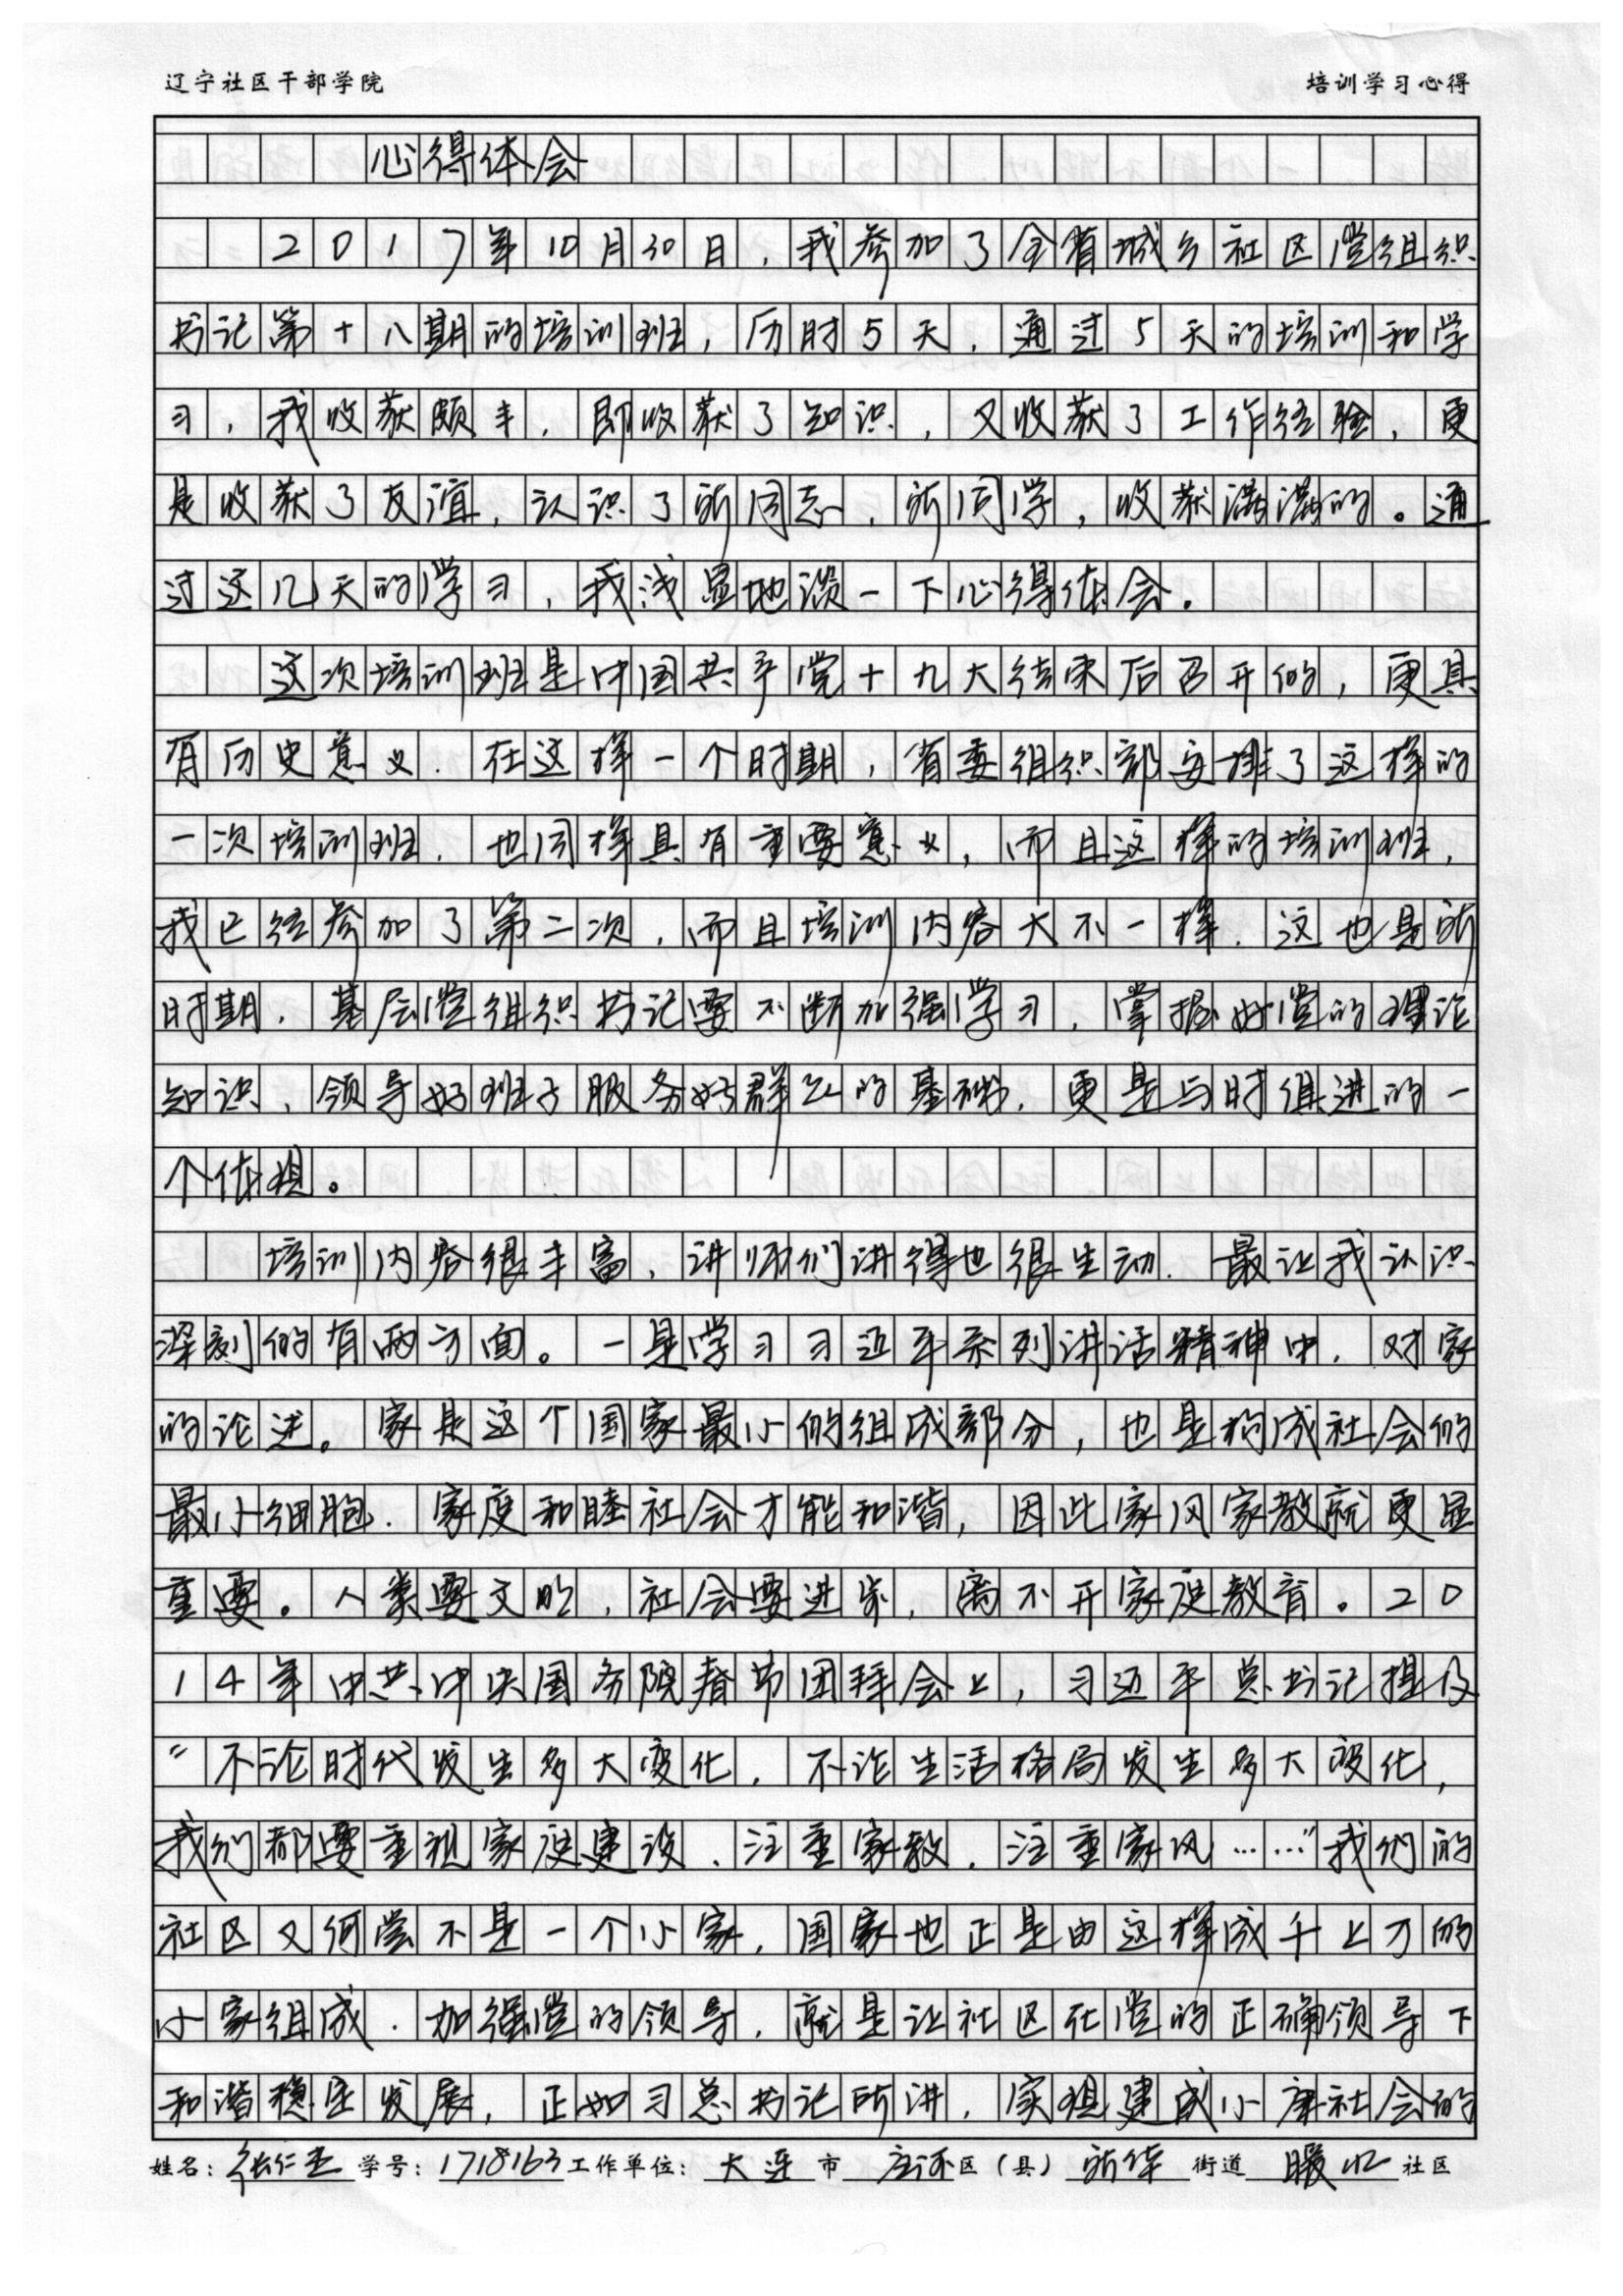 辽宁社区干部学院
培训学习心得
心得体会
2017年10月30日，我参加了全省城乡社区党组织
书记第十八期的培训班，历时5天，通过5天的培训和学
习，我收获颇丰，即收获了知识，又收获了工作经验，更
是收获了友谊，认识了新同志，新同学，收获满满的。通
过这几天的学习，我浅显地谈一下心得体会。
这次培训班是中国共产党十九大结束后召开的，更具
有历史意义．在这样一个时期，省委组织部安排了这样的
一次培训班．也同样具有重要意义，而且这样的培训班，
我已经参加了第二次，而且培训内容大不一样．这也是新
时期，基层党组织书记要不断加强学习，掌握好党的理论
知识、领导好班子服务好群众的基础，更是与时俱进的一
个体现。
培训内容很丰富、讲师们讲得也很生动．最让我认识
深刻的有两方面。一是学习习近平系列讲话精神中，对家
的论述。家是这个国家最小的组成部分，也是构成社会的
最小细胞．家庭和睦社会才能和谐，因此家风家教就更显
重要。人类要文明，社会要进步，离不开家庭教育。20
14年中共中央国务院春节团拜会上，习近平总书记提及
“不论时代发生多大变化，不论生活格局发生多大变化，
我们都要重视家庭建设、注重家教，注重家风……”我们的
社区又何尝不是一个小家，国家也正是由这样成千上万的
小家组成．加强党的领导，就是让社区在党的正确领导下
和谐稳定发展，正如习总书记所讲，实现建成小康社会的
姓名：张仁杰 学号：1718163 工作单位：大连 市 庄河 区（县） 新华 街道 暖水 社区